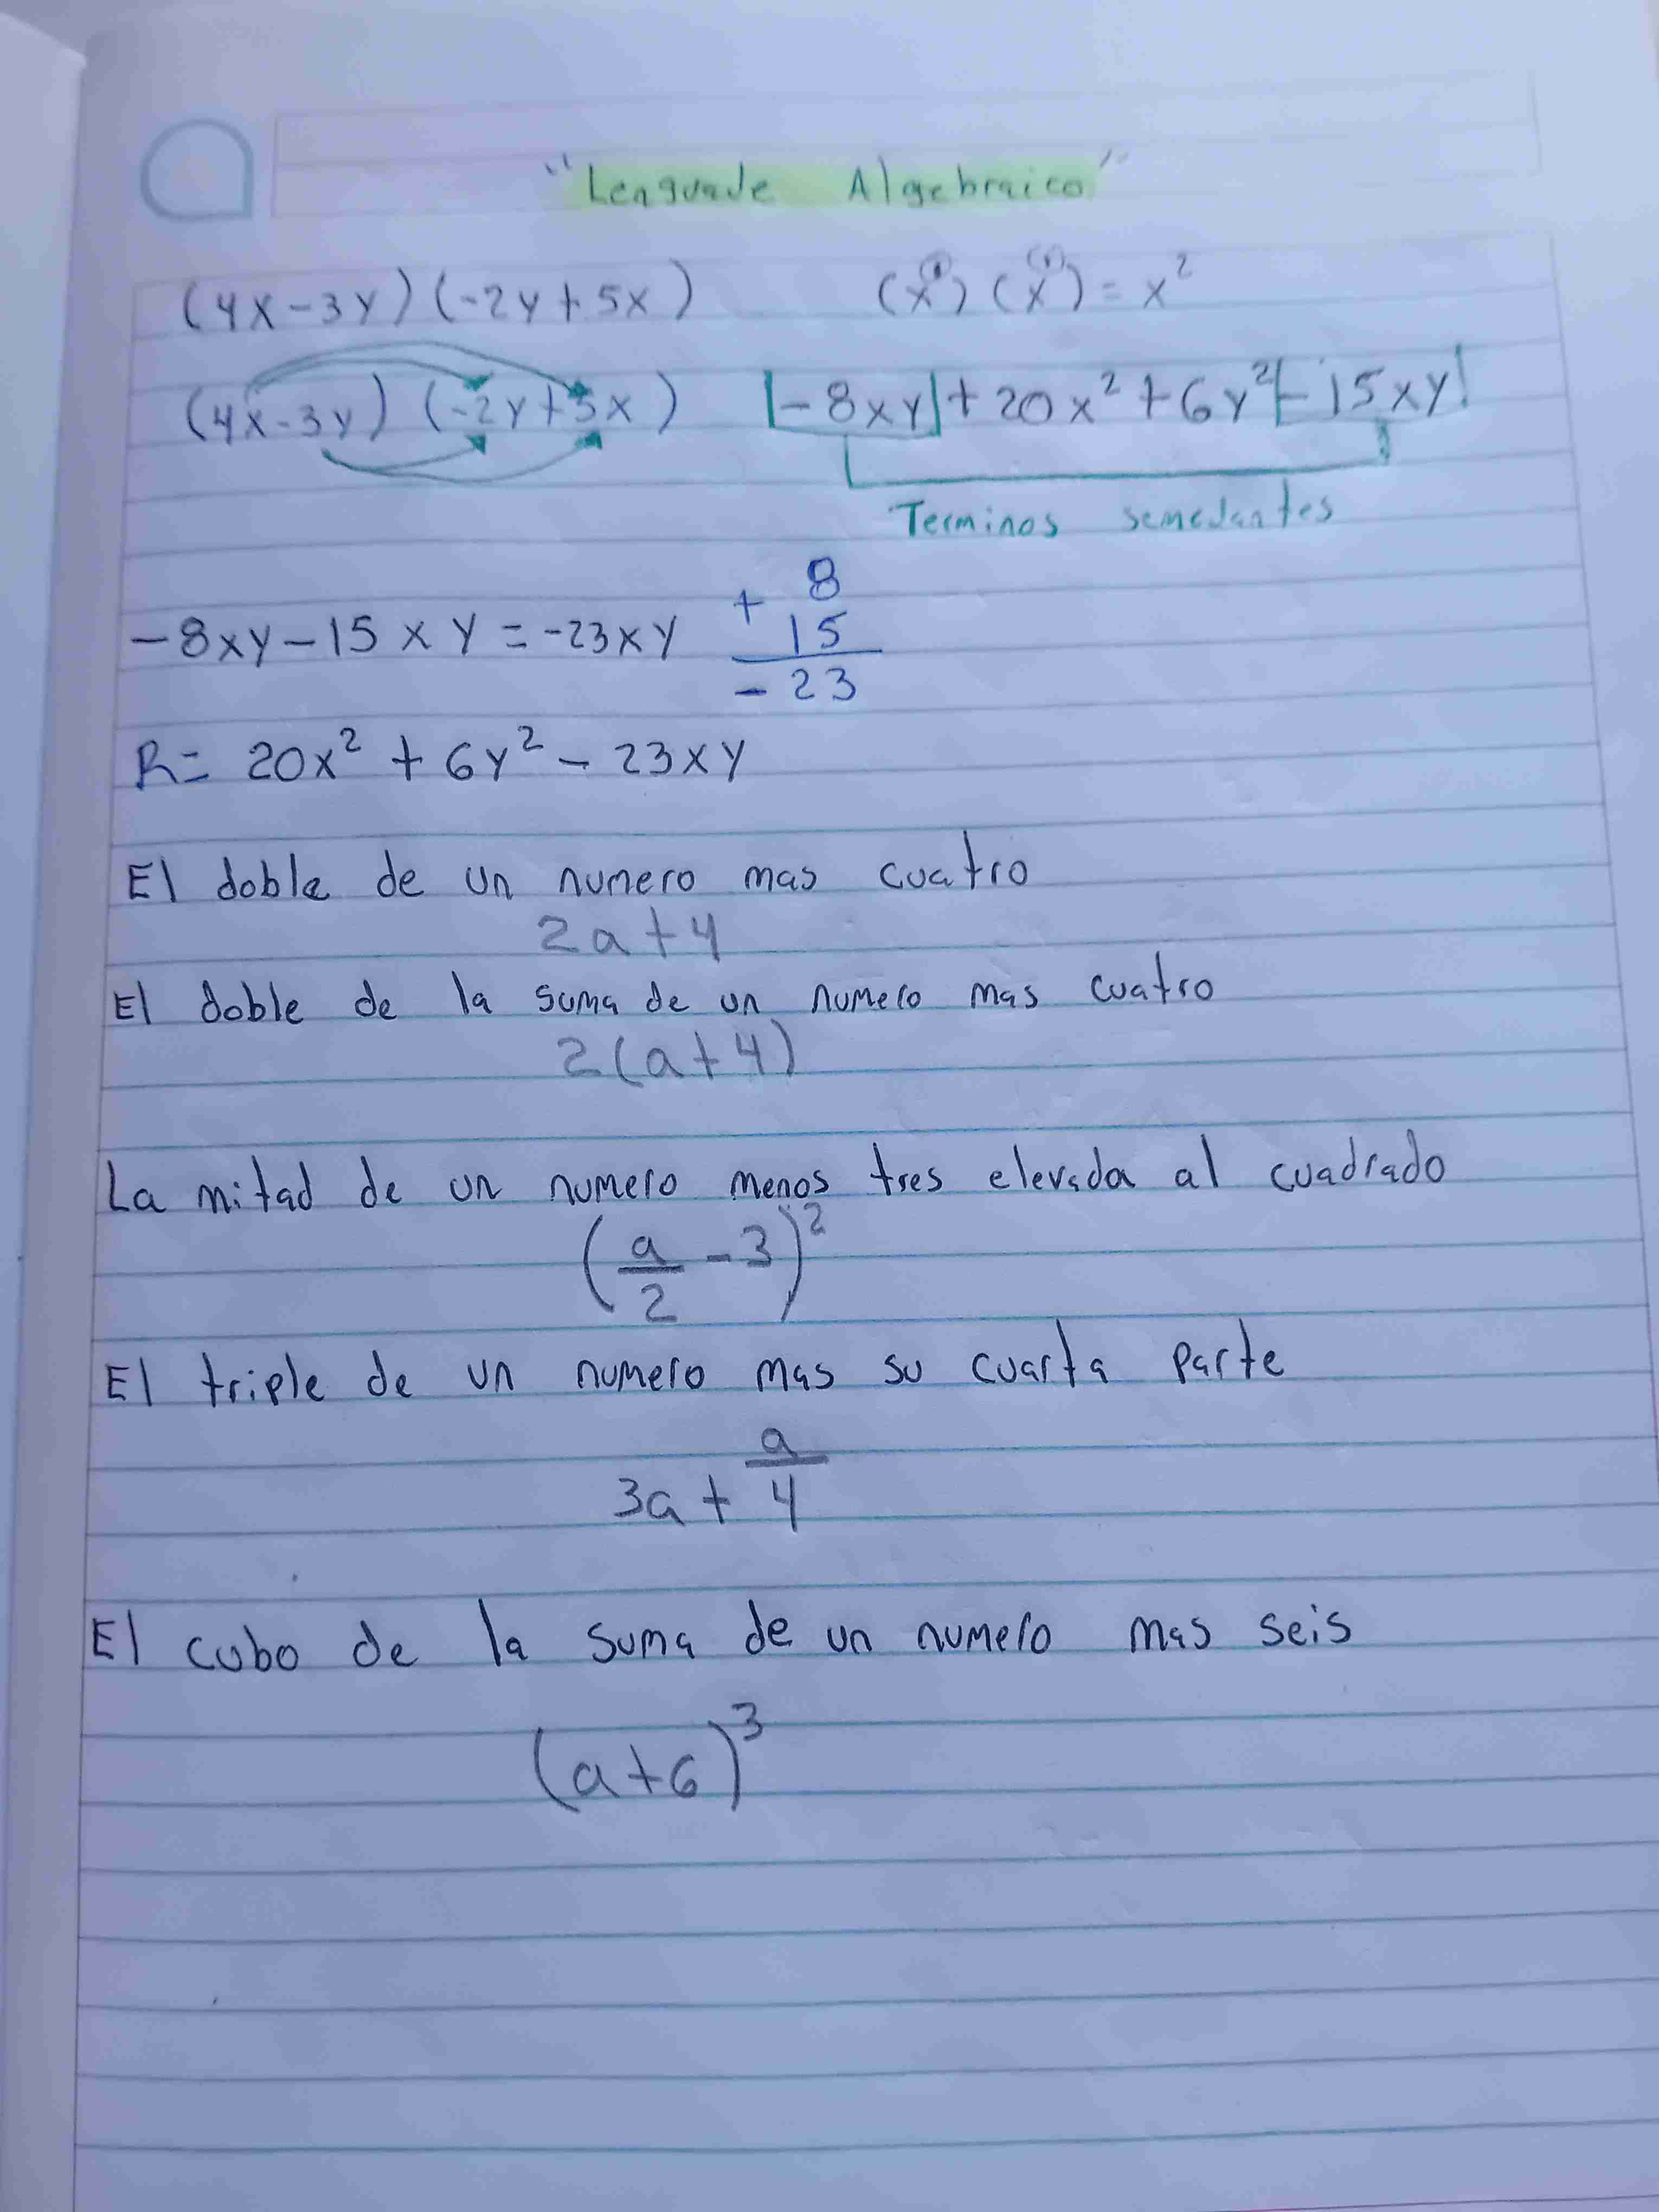 "Lenguaje Algebraico"
(4x-3y)(-2y+5x) (x⁽¹⁾)(x⁽¹⁾)=x²
(4x-3y)(-2y+5x) |-8xy|+20x²+6y²|-15xy|
Terminos semejantes
-8xy-15xy=-23xy
+ 8
15
-23
R= 20x²+6y²-23xy
El doble de un numero mas cuatro
2a+4
El doble de la suma de un numero mas cuatro
2(a+4)
La mitad de un numero menos tres elevada al cuadrado
(a/2-3)²
El triple de un numero mas su cuarta parte
3a+a/4
El cubo de la suma de un numero mas seis
(a+6)³